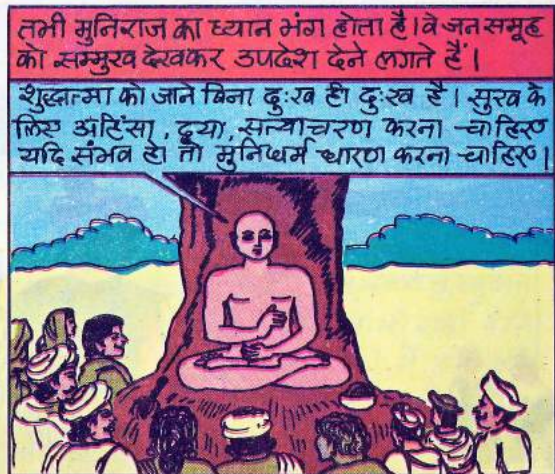 तभी मुनिराज का ध्यान भंग होता है। वे जन समूह
को सम्मुख देखकर उपदेश देने लगते हैं।
शुद्धात्मा को जाने बिना दुःख ही दुःख है। सुख के
लिए अहिंसा, दया, सत्याचरण करना चाहिए
यदि संभव हो तो मुनिधर्म धारण करना चाहिए।